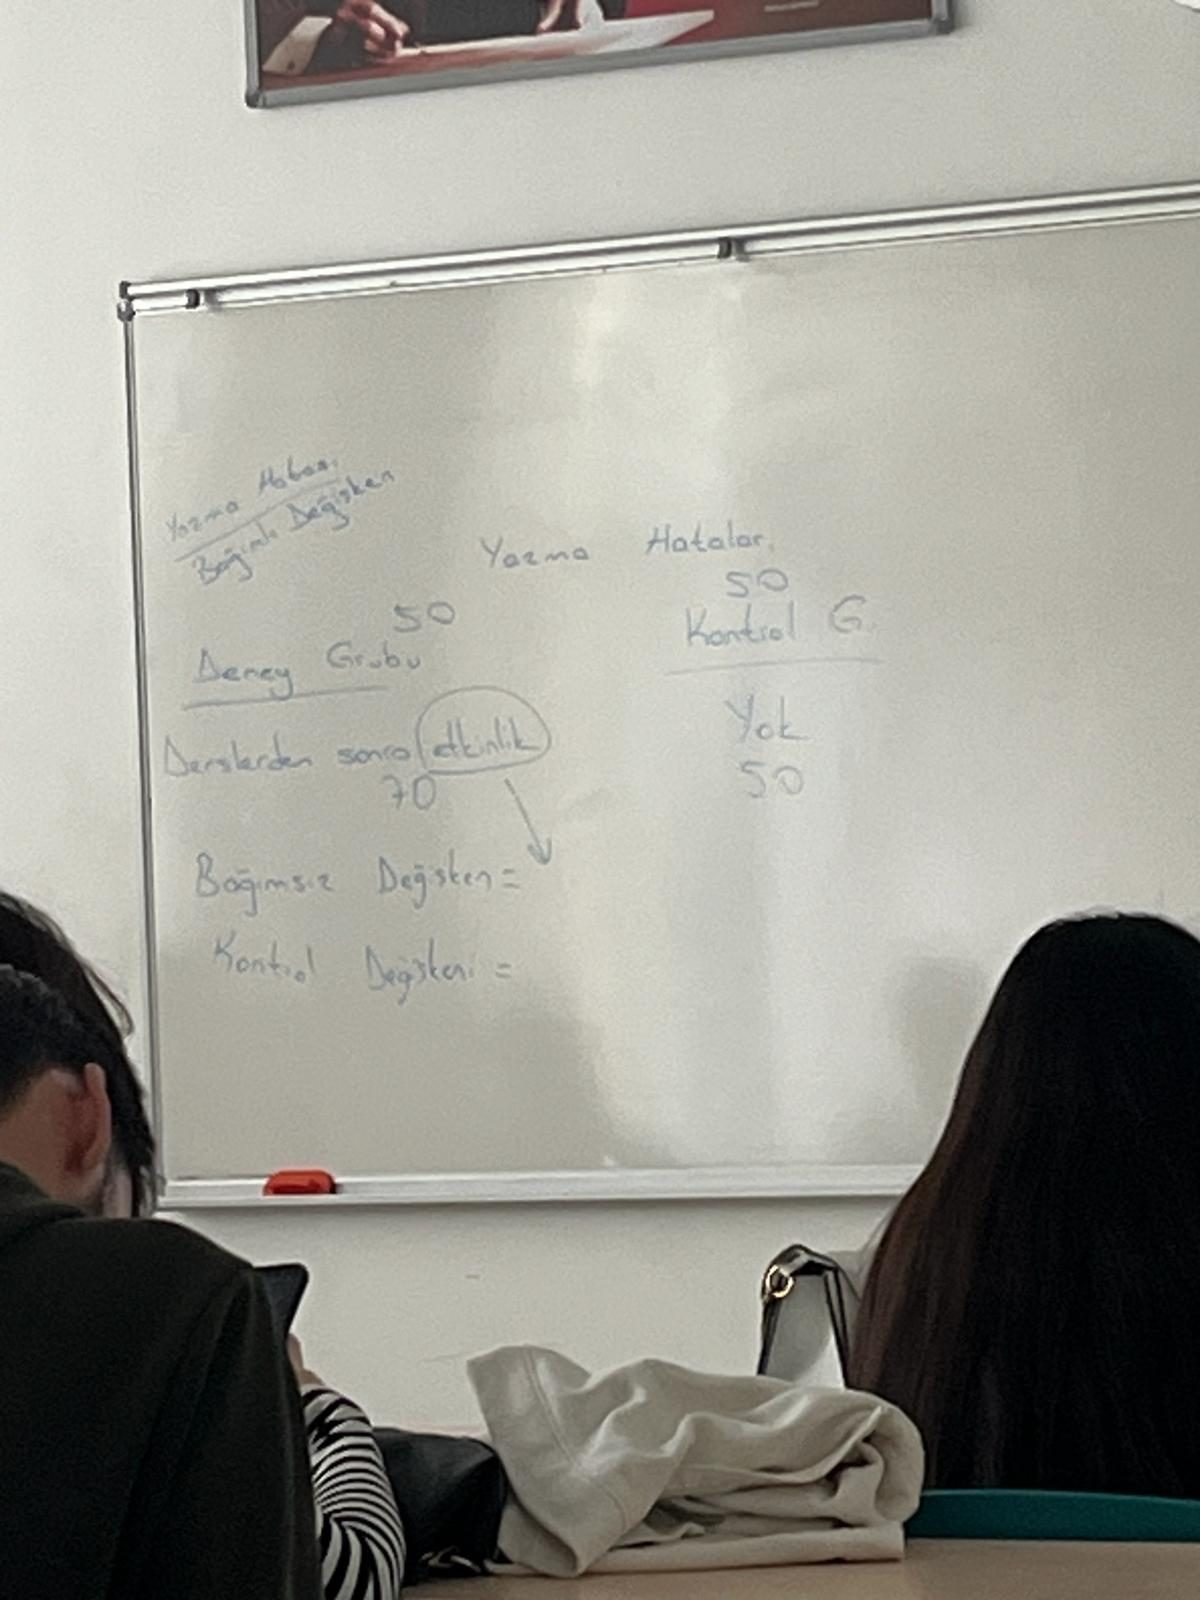 Yazma Hatası
Bağımlı Değişken
Yazma Hataları
50
50
Deney Grubu
Kontrol G.
Derslerden sonra etkinlik
70
Yok
50
Bağımsız Değişken =
Kontrol Değişkeni =